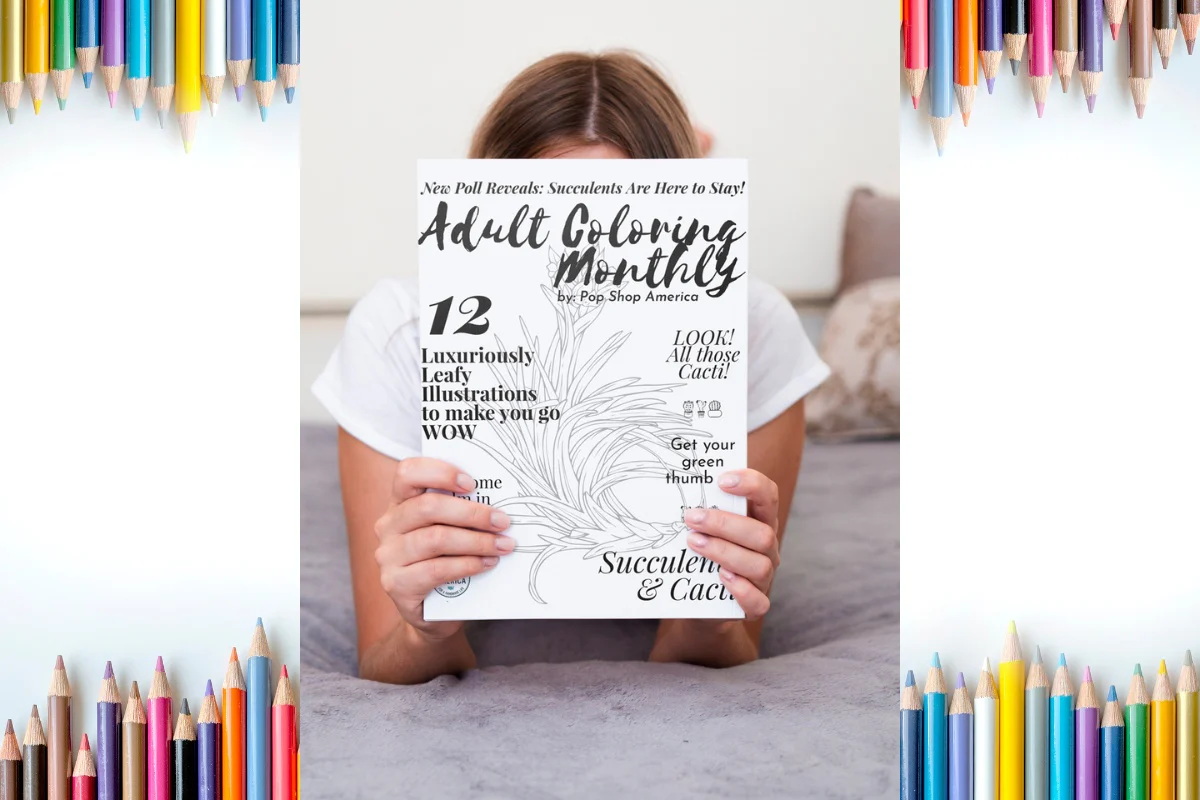 New Poll Reveals: Succulents Are Here to Stay!
Adult Coloring
Monthly
by: Pop Shop America
12
Luxuriously
Leafy
Illustrations
to make you go
WOW
LOOK!
All those
Cacti!
Get your
green
thumb
in
Succulen
& Cacti